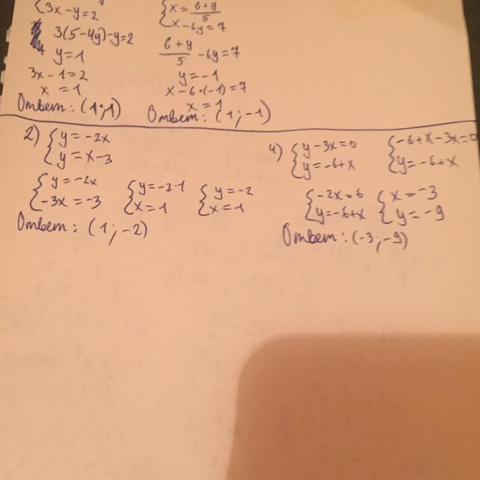 3x-y=2
3(5-4y)-y=2
y=1
3x-1=2
x=1
Ответ: (1;1)
{x=6+y/5
x-6y=7
6+y/5 -6y=7
y=-1
x-6·(-1)=7
x=1
Ответ: (1;-1)
2) {y=-2x
y=x-3
{y=-2x
-3x=-3
{y=-2·1
x=1
{y=-2
x=1
Ответ: (1;-2)
4) {y-3x=0
y=-6+x
{-6+x-3x=0
y=-6+x
{-2x=6
y=-6+x
{x=-3
y=-9
Ответ: (-3;-9)